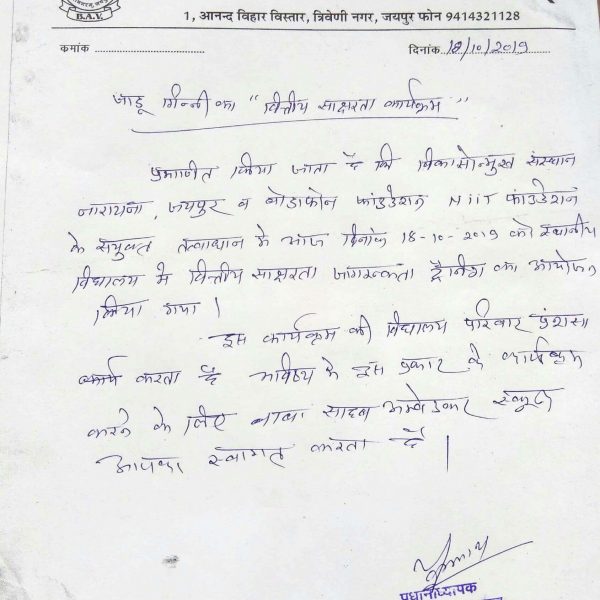 B.A.V.
1, आनन्द विहार विस्तार, त्रिवेणी नगर, जयपुर फोन 9414321128
क्रमांक
दिनांक 18/10/2019
जादू गिन्नी का "वित्तीय साक्षरता कार्यक्रम"
प्रमाणित किया जाता है कि विकासोन्मुख संस्थान
नारायना, जयपुर व वोडाफोन फांउडेशन NIIT फांउडेशन
के संयुक्त तत्वाधान मे आज दिनांक 18-10-2019 को स्थानीय
विद्यालय मे वित्तीय साक्षरता जागरूकता ट्रैनिंग का आयोजन
किया गया।
इस कार्यक्रम की विद्यालय परिवार प्रंशसा
व्यक्त करता है भविष्य मे इस प्रकार के कार्यक्रम
करने के लिए बाबा साहब अम्बेडकर स्कूल
आपका स्वागत करता है।
प्रधानाध्यापक